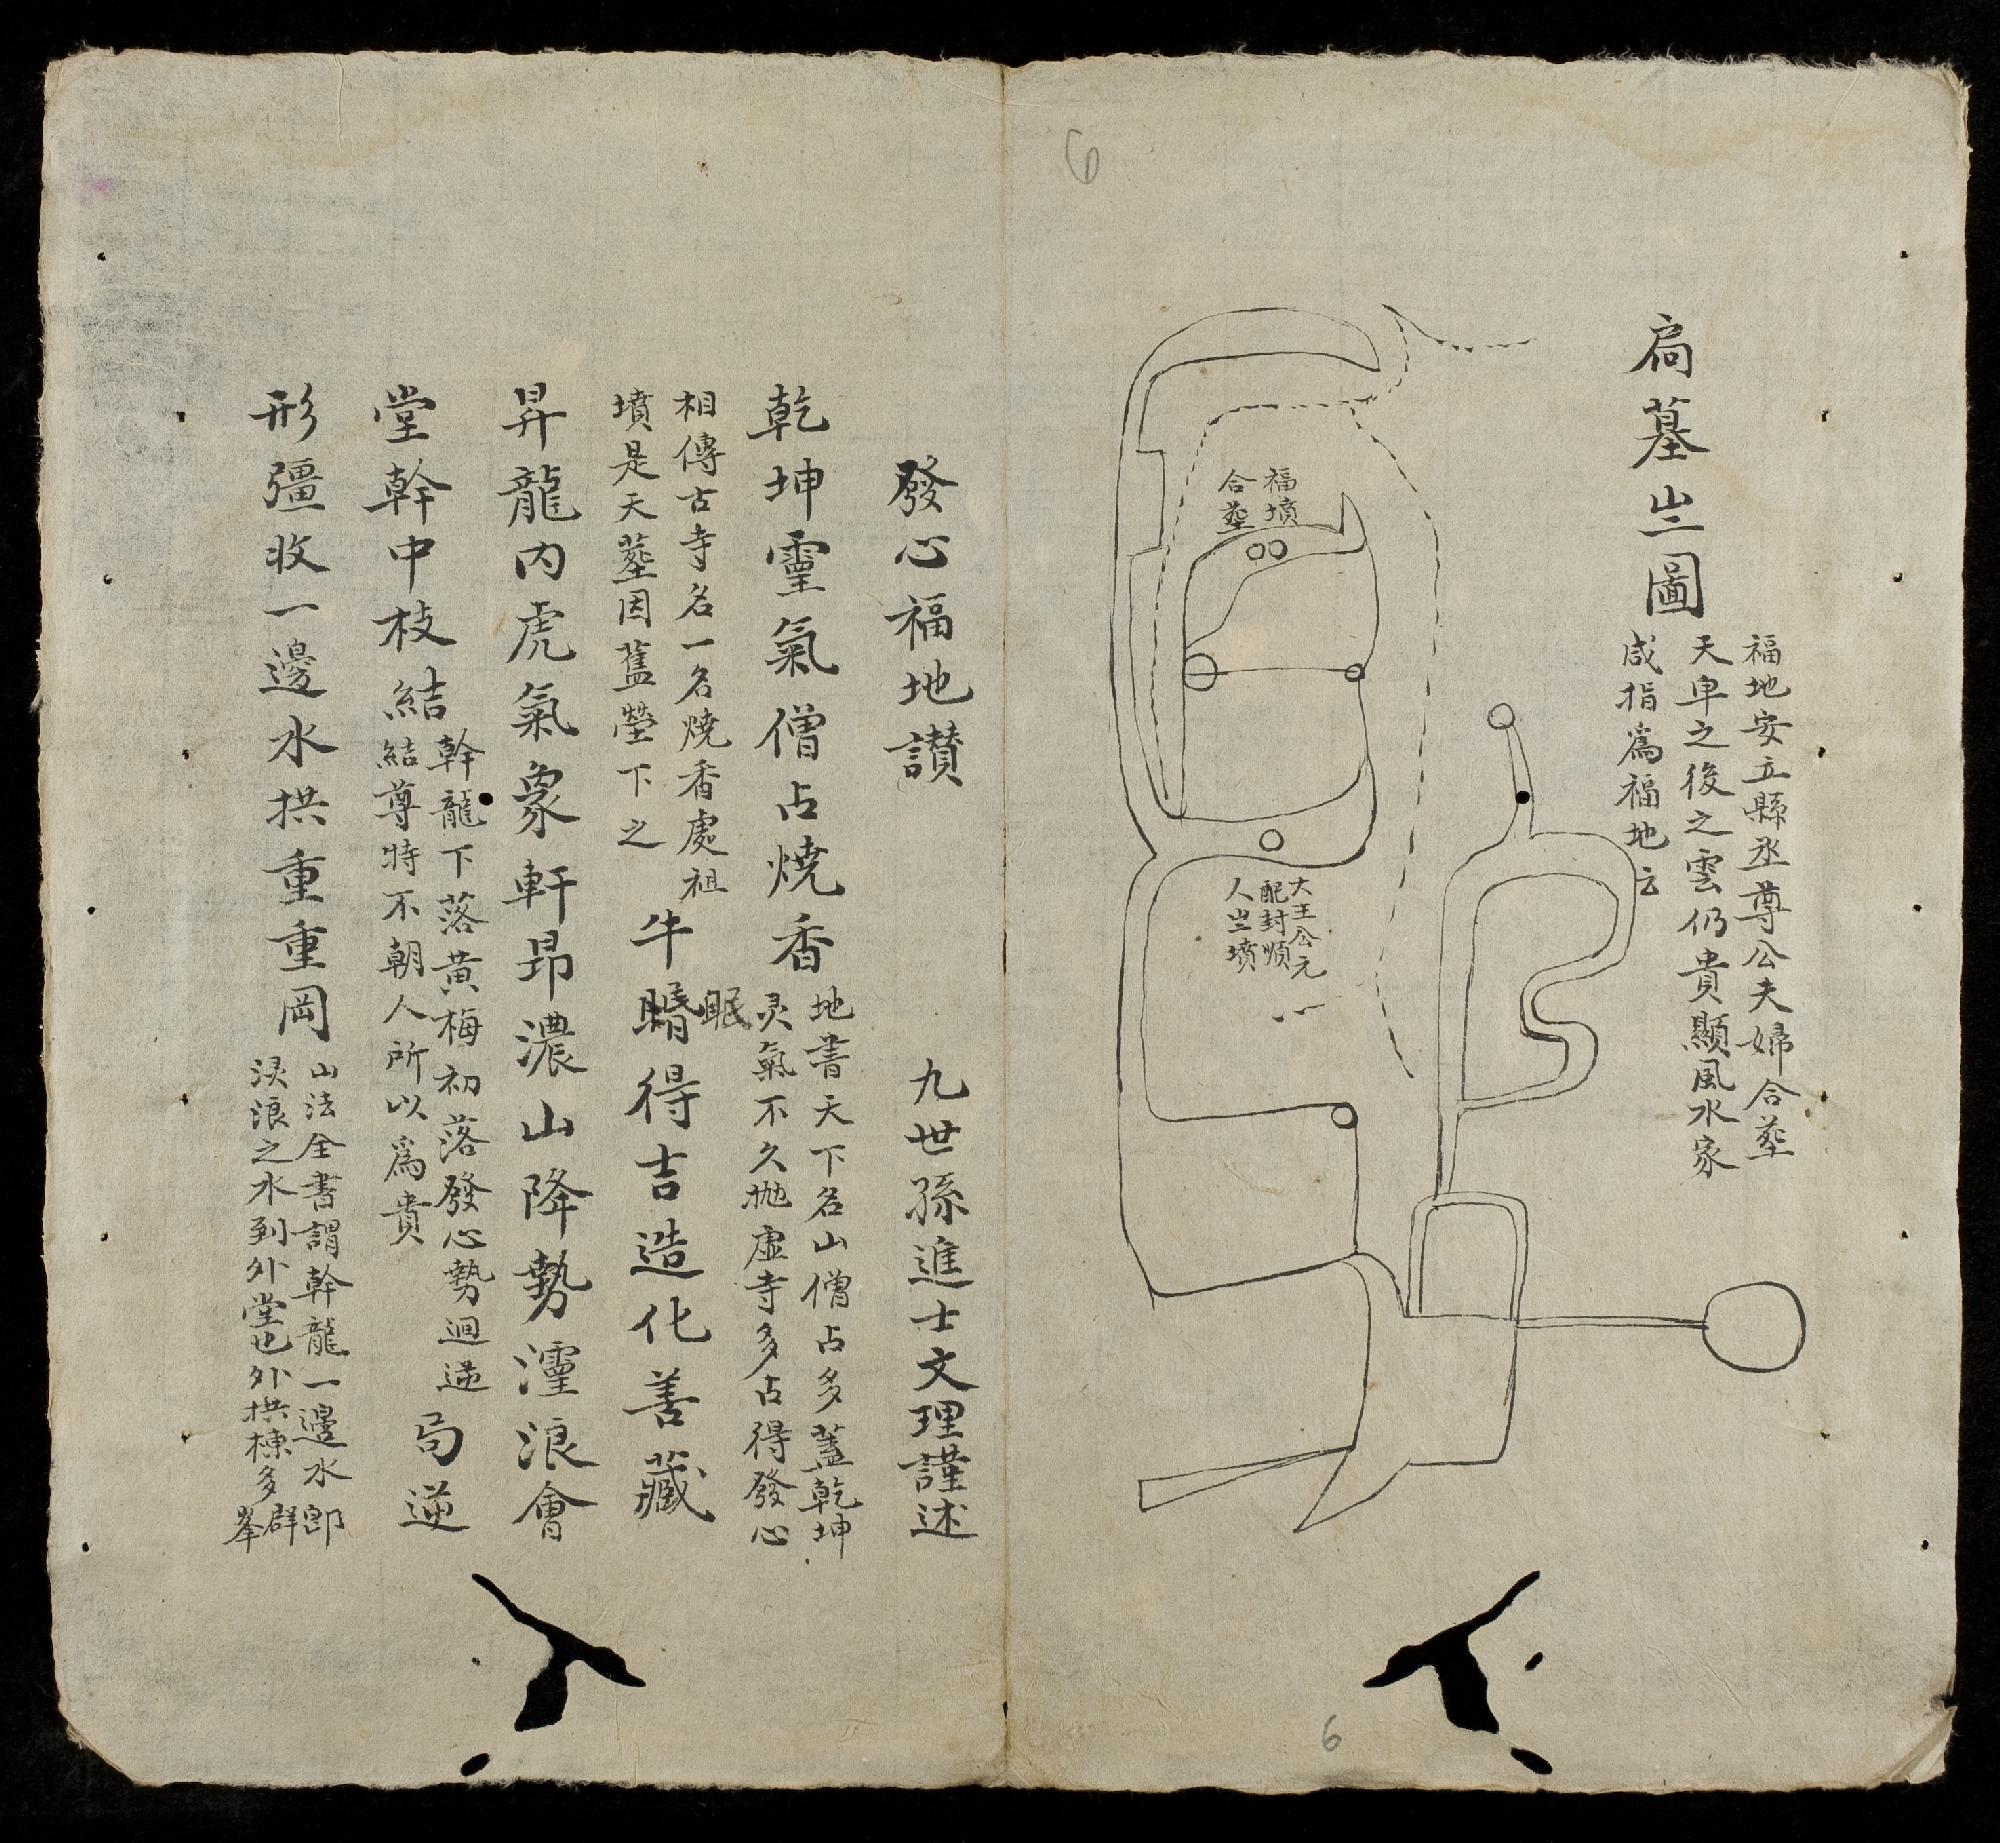 扃墓亗圖
福地安立縣丞尊公夫婦合塟
天皁之後之雲仍貴顯風水家
咸指爲福地云
福墳
合塟
大王公元
配封順
人亗墳
6
6
發心福地讃 九世孫進士文理謹述
乾坤靈氣僧占燒香
地書天下名山僧占多蓋乾坤
灵氣不久抛虛寺多占得發心
相傳古寺名一名燒香處祖
墳是天塟因舊塋下之
牛㬌得吉造化善藏
眠
昇龍内虎氣象軒昂濃山降勢𤅷浪會
堂幹中枝結
幹龍下落黄梅初落發心勢迴逆
結尊特不朝人所以爲貴
局逆
形彊收一邊水拱重重岡
山法全書謂幹龍一邊水即
湥浪之水到外堂也外拱棟多群峯